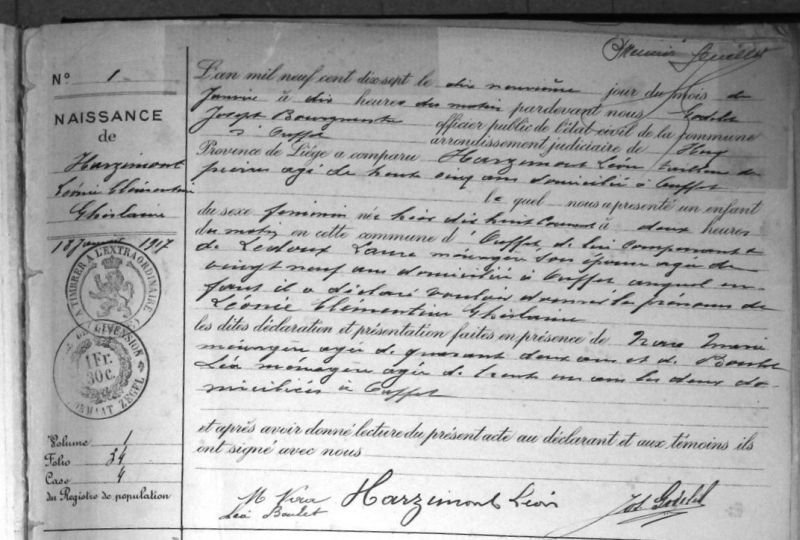 Premier feuillet
N° 1
NAISSANCE
de
Harzimont
Léonie Clémentine
Ghislaine
18 Janvier 1917
A TIMBRER A L'EXTRAORDINAIRE
1 Fr.
30 C.
FORMAAT ZEGEL
Volume 1
Folio 34
Case 4
du Registre de population
L'an mil neuf cent dix sept le dix neuvième jour du mois de
Janvier à dix heures du matin pardevant nous Godelet
Joseph Bourgmestre officier public de l'état-civil de la commune
d'Ouffet arrondissement judiciaire de Huy
Province de Liége a comparu Harzimont Léon tailleur de
pierres agé de trente cinq ans domicilié à Ouffet
le quel nous a présenté un enfant
du sexe féminin née hier dix huit courant à deux heures
du matin en cette commune d'Ouffet, de lui comparant &
de Ledoux Laure ménagère son épouse agée de
vingt neuf ans domiciliée à Ouffet, auquel en-
fant il a déclaré vouloir donner les prénoms de
Léonie Clémentine Ghislaine
les dites déclaration et présentation faites en présence de Marie
ménagère agée de quarante deux ans et de Boulet
Léa ménagère agée de trente un ans les deux do-
miciliées à Ouffet
et après avoir donné lecture du présent acte au déclarant et aux témoins ils
ont signé avec nous
M Harzimont Léon
Léa Boulet